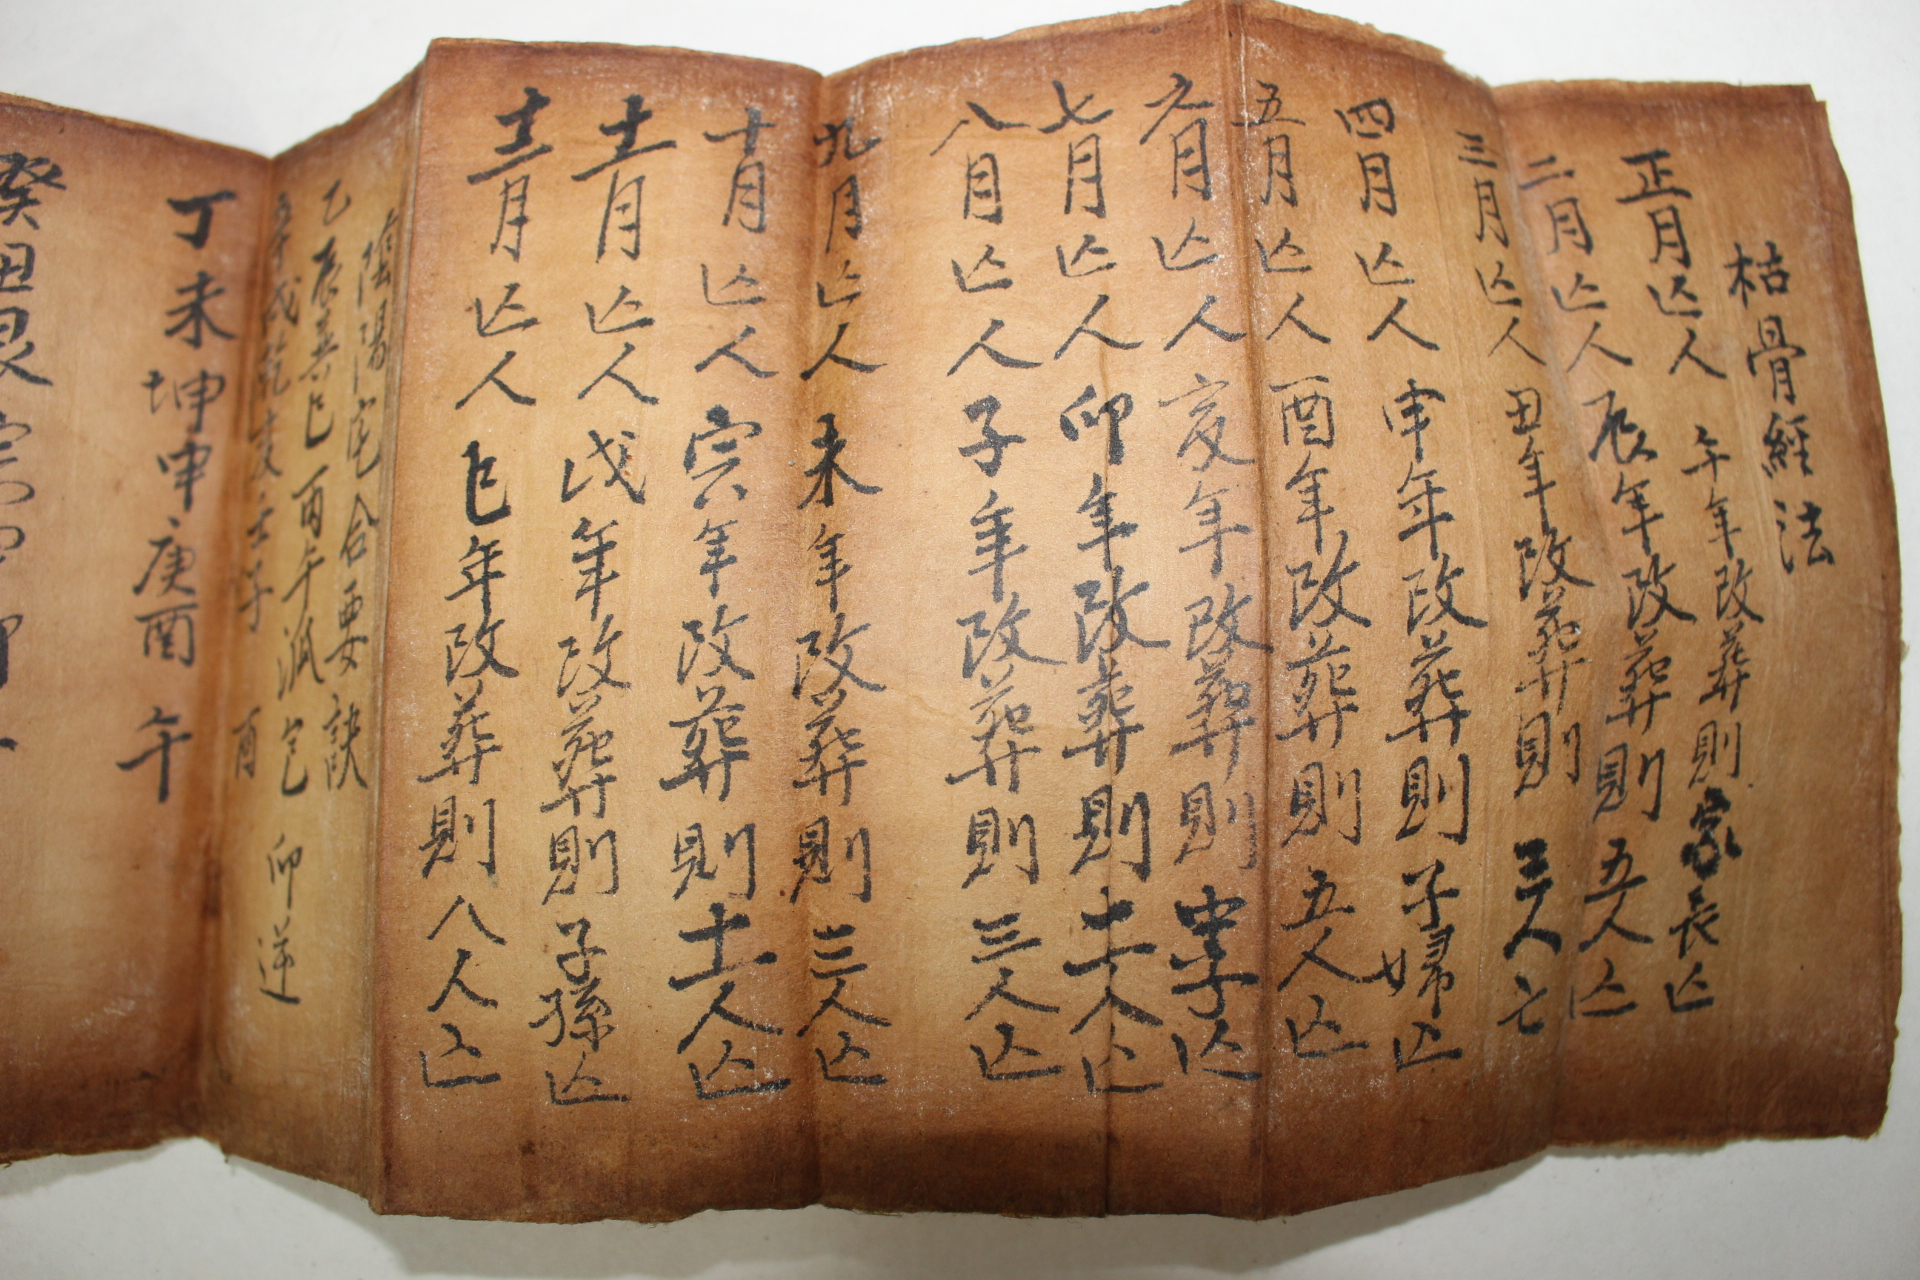 枯骨經法
正月亾人 午年改葬則家長亾
二月亾人 辰年改葬則五人亾
三月亾人 丑年改葬則三人亡
四月亾人 申年改葬則子婦亾
五月亾人 酉年改葬則五人亾
六月亾人 亥年改葬則中子亾
七月亾人 卯年改葬則二人亾
八月亾人 子年改葬則三人亾
九月亾人 未年改葬則三人亾
十月亾人 寅年改葬則十一人亾
十一月亾人 戌年改葬則子孫亾
十二月亾人 巳年改葬則八人亾
陰陽宅合要訣
乙辰巽巳丙午 卯逆
辛戌乾亥壬子 酉
丁未坤申庚酉 午
癸丑艮寅甲卯